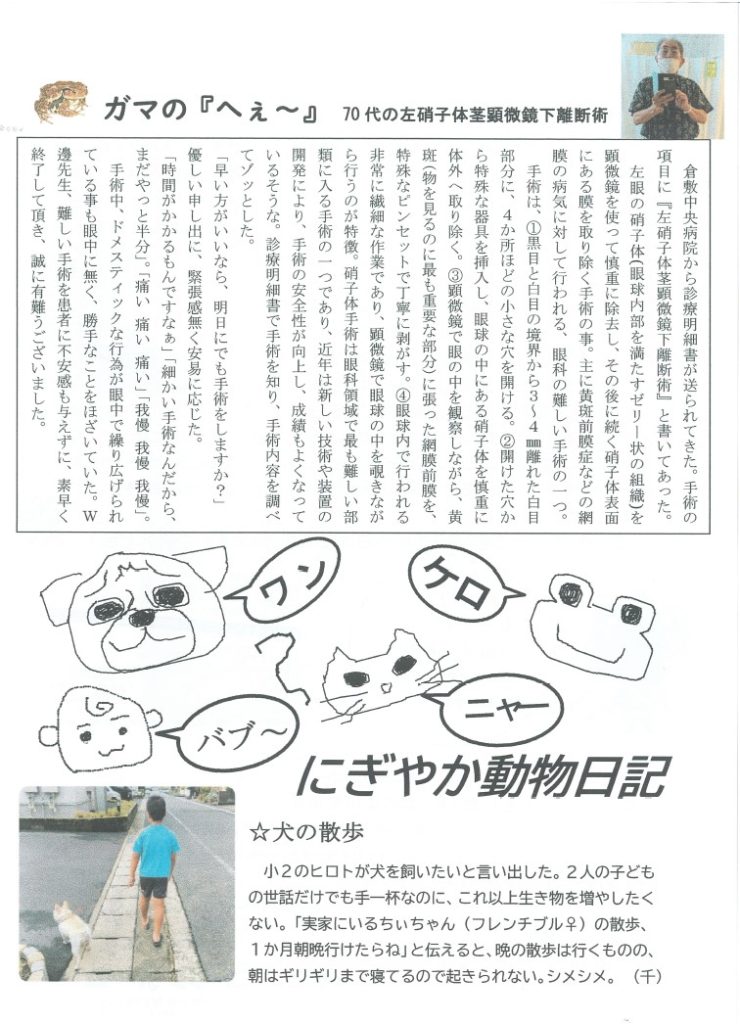 ガマの『へぇ～』 70代の左硝子体茎顕微鏡下離断術
倉敷中央病院から診療明細書が送られてきた。手術の
項目に『左硝子体茎顕微鏡下離断術』と書いてあった。
左眼の硝子体(眼球内部を満たすゼリー状の組織)を
顕微鏡を使って慎重に除去し、その後に続く硝子体表面
にある膜を取り除く手術の事。主に黄斑前膜症などの網
膜の病気に対して行われる、眼科の難しい手術の一つ。
手術は、①黒目と白目の境界から3～4㎜離れた白目
部分に、4か所ほどの小さな穴を開ける。②開けた穴か
ら特殊な器具を挿入し、眼球の中にある硝子体を慎重に
体外へ取り除く。③顕微鏡で眼の中を観察しながら、黄
斑(物を見るのに最も重要な部分)に張った網膜前膜を、
特殊なピンセットで丁寧に剥がす。④眼球内で行われる
非常に繊細な作業であり、顕微鏡で眼球の中を覗きなが
ら行うのが特徴。硝子体手術は眼科領域で最も難しい部
類に入る手術の一つであり、近年は新しい技術や装置の
開発により、手術の安全性が向上し、成績もよくなって
いるそうな。診療明細書で手術を知り、手術内容を調べ
てゾッとした。
「早い方がいいなら、明日にでも手術をしますか？」
優しい申し出に、緊張感無く安易に応じた。
「時間がかかるもんですなぁ」「細かい手術なんだから、
まだやっと半分」。「痛い 痛い 痛い」「我慢 我慢 我慢」。
手術中、ドメスティックな行為が眼中で繰り広げられ
ている事も眼中に無く、勝手なことをほざいていた。W
邊先生、難しい手術を患者に不安感も与えずに、素早く
終了して頂き、誠に有難うございました。
ワン
ケロ
ニャー
バブ～
にぎやか動物日記
☆犬の散歩
小2のヒロトが犬を飼いたいと言い出した。2人の子ども
の世話だけでも手一杯なのに、これ以上生き物を増やしたく
ない。「実家にいるちぃちゃん（フレンチブル♀）の散歩、
1か月朝晩行けたらね」と伝えると、晩の散歩は行くものの、
朝はギリギリまで寝てるので起きられない。シメシメ。（千）